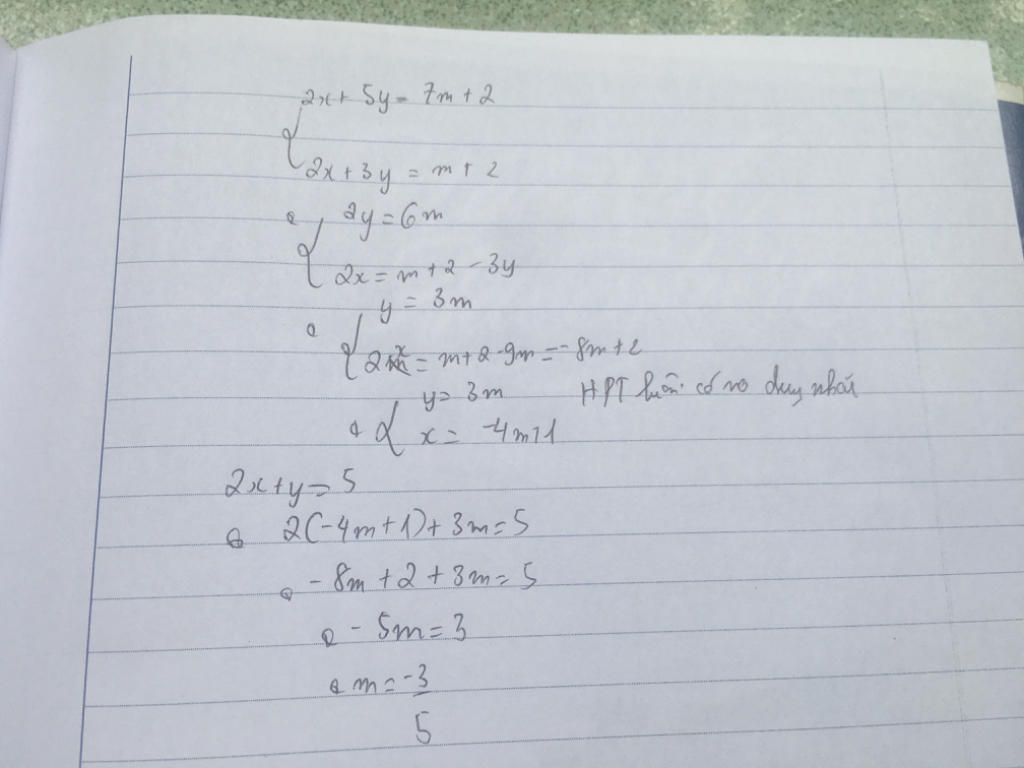 2x + 5y = 7m + 2
2x + 3y = m + 2
2y = 6m
2x = m + 2 - 3y
y = 3m
2x = m + 2 - 9m = -8m + 2
y = 3m HPT luôn có no duy nhất
x = -4m + 1
2x + y = 5
2(-4m + 1) + 3m = 5
-8m + 2 + 3m = 5
-5m = 3
m = -3
5